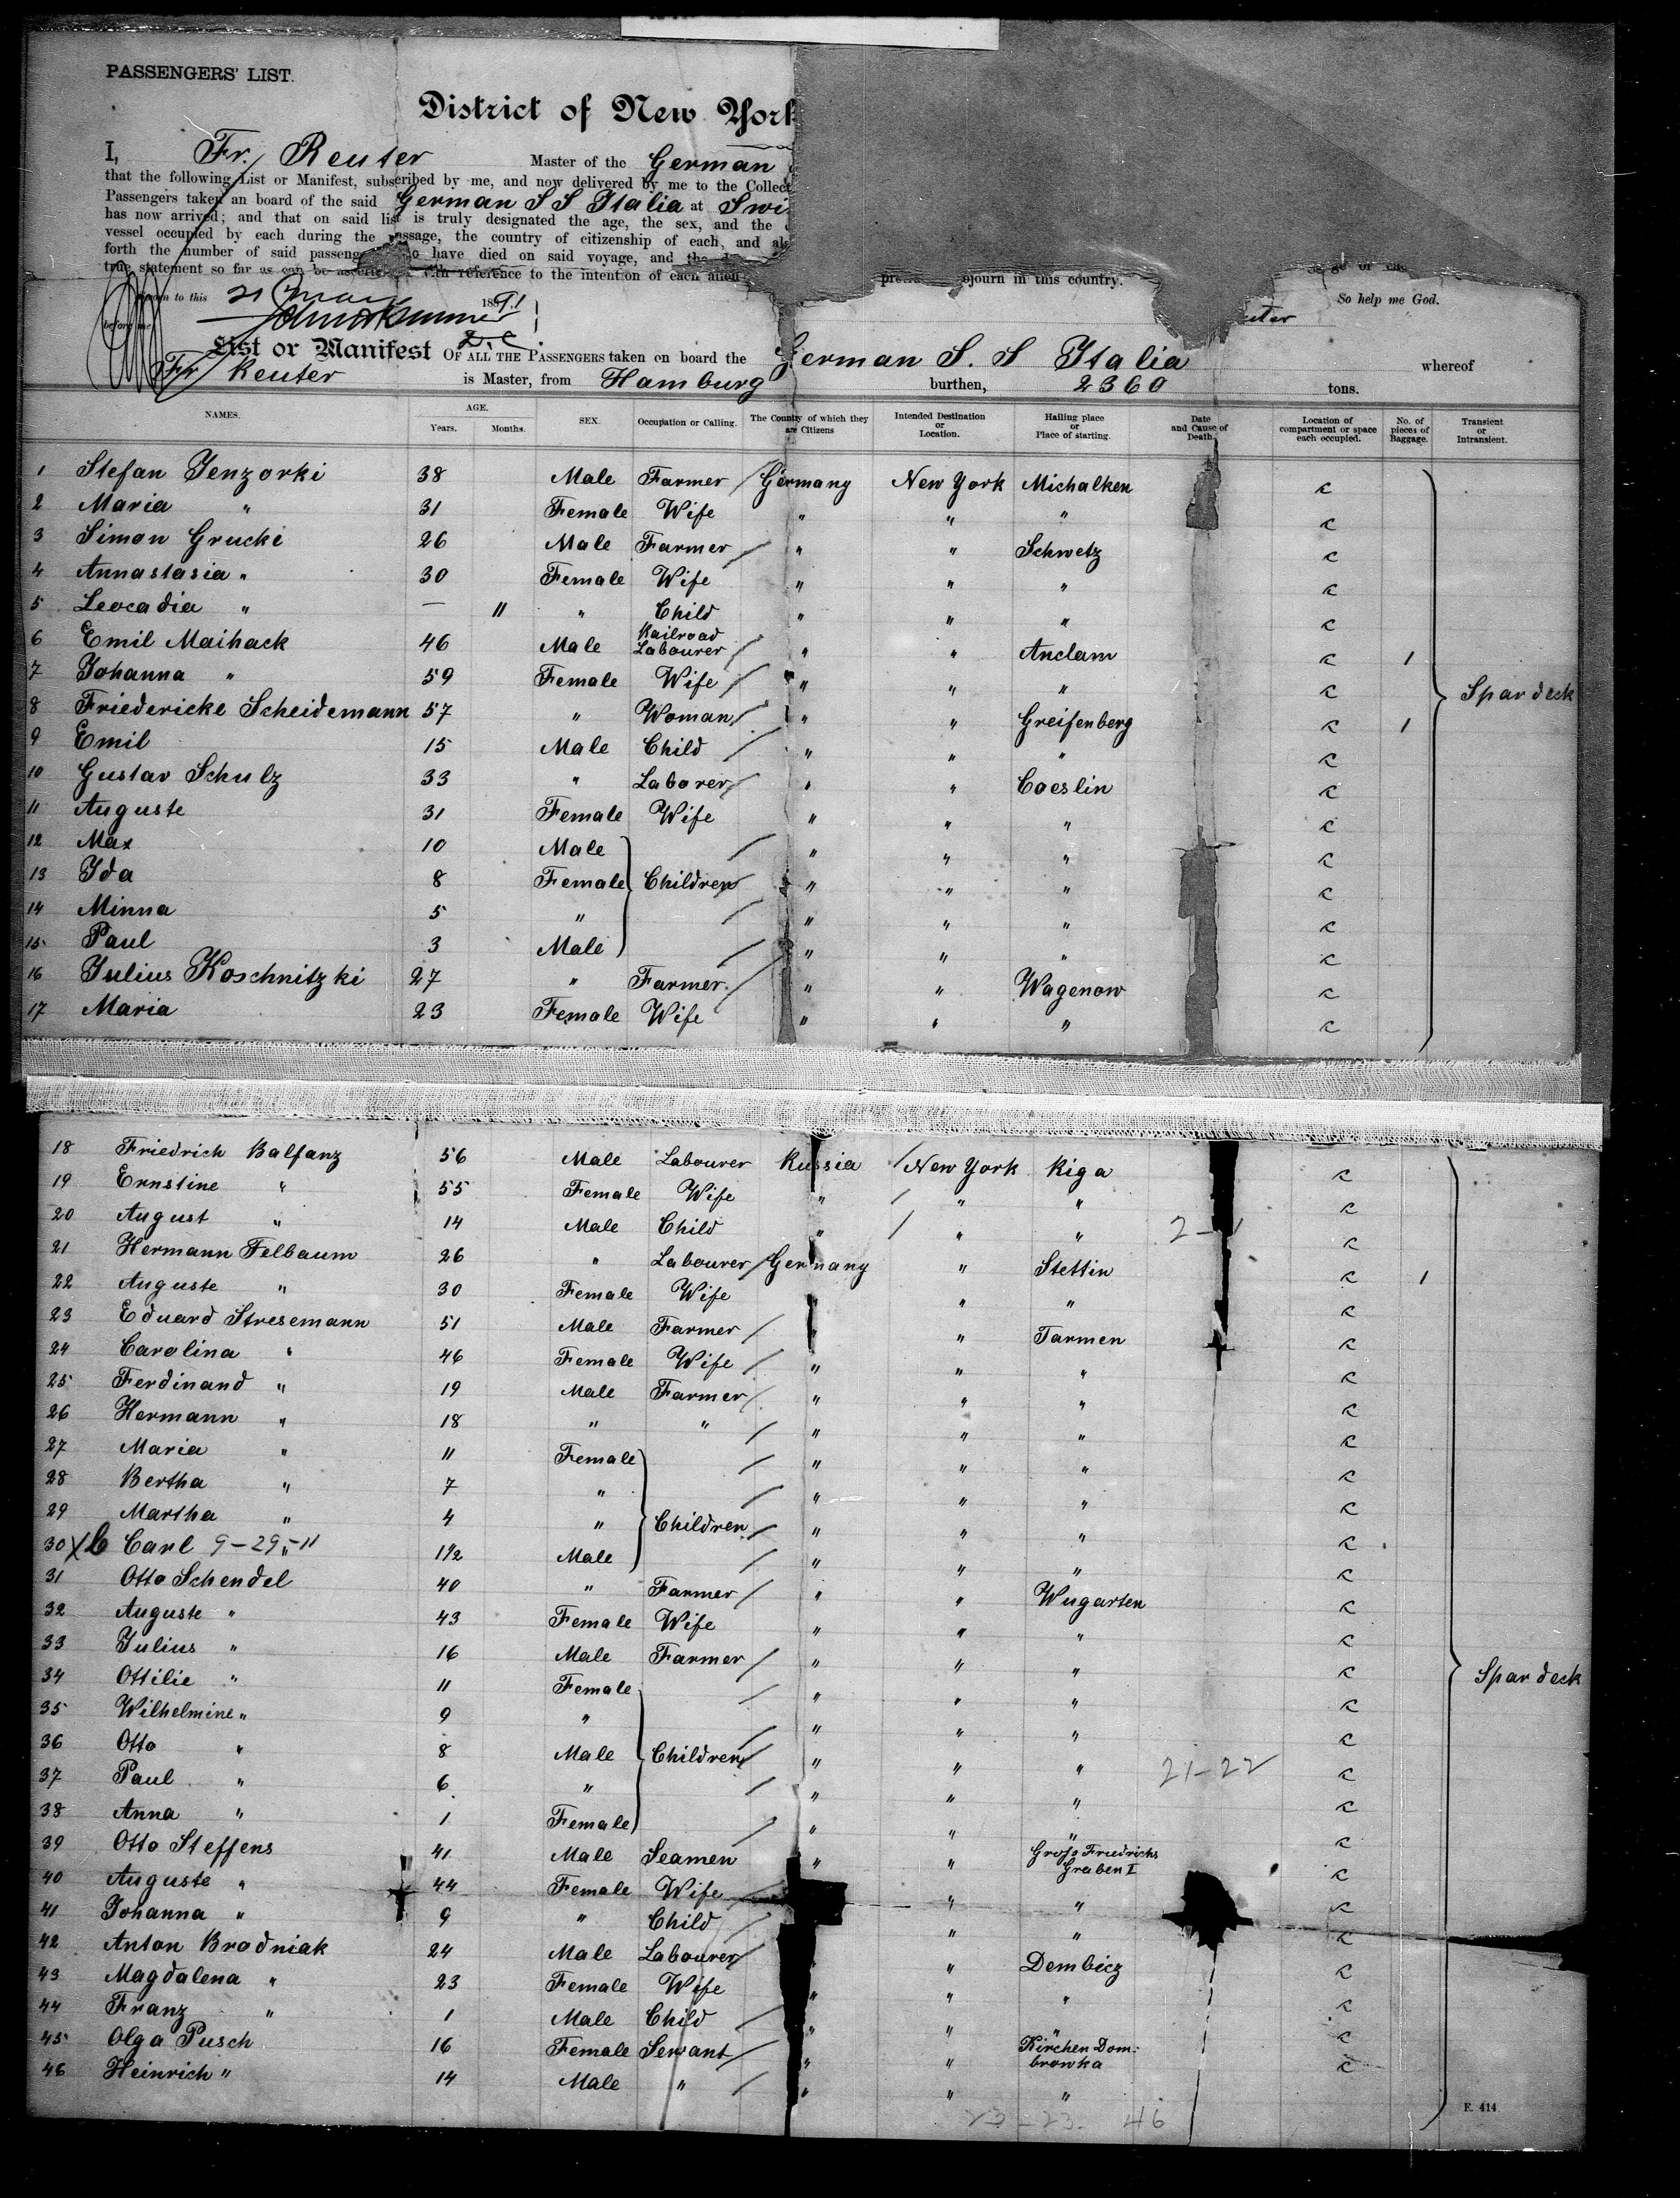 PASSENGERS' LIST.
District of New York
I, Fr. Reuter Master of the German
that the following List or Manifest, subscribed by me, and now delivered by me to the Collect
Passengers taken an board of the said German S S Italia at Swi
has now arrived; and that on said list is truly designated the age, the sex, and the
vessel occupied by each during the passage, the country of citizenship of each, and als
forth the number of said passeng o have died on said voyage, and the
true statement so far as can be with reference to the intention of each alien
pr ojourn in this country.
So help me God.
Sworn to this 21 May 1891
before me
List or Manifest OF ALL THE PASSENGERS taken on board the German S. S Italia whereof
Fr Reuter is Master, from Hamburg burthen, 2360 tons.
NAMES. AGE. Years. Months. SEX. Occupation or Calling. The Country of which they are Citizens Intended Destination or Location. Hailing place or Place of starting. Date and Cause of Death. Location of compartment or space each occupied. No. of pieces of Baggage. Transient or Intransient.
1 Stefan Jenzorki 38 Male Farmer / Germany New York Michalken c
2 Maria " 31 Female Wife " " " c
3 Simon Grucki 26 Male Farmer / " " Schwetz c
4 Annastasia " 30 Female Wife " " " c
5 Leocadia " — 11 " Child " " " c
6 Emil Maihack 46 Male Railroad Labourer / " " Anclam c 1
7 Johanna " 59 Female Wife / " " " c
Spardeck
8 Friedericke Scheidemann 57 " Woman / " " Greifenberg c 1
9 Emil 15 Male Child / " " " c
10 Gustav Schulz 33 " Laborer / " " Coeslin c
11 Auguste 31 Female Wife " " " c
12 Max 10 Male / " " " c
13 Ida 8 Female Children / " " " c
14 Minna 5 " / " " " c
15 Paul 3 Male / " " " c
16 Julius Koschnitzki 27 " Farmer / " " Wagenow c
17 Maria 23 Female Wife " " " c
18 Friedrich Balfanz 56 Male Labourer Russia / New York Riga c
19 Ernstine " 55 Female Wife " / " " c
20 August " 14 Male Child " / " " c
21 Hermann Felbaum 26 " Labourer / Germany " Stettin c 1
22 Auguste " 30 Female Wife " " " c
23 Eduard Stresemann 51 Male Farmer / " " Tarmen c
24 Carolina " 46 Female Wife / " " " c
25 Ferdinand " 19 Male Farmer / " " " c
26 Hermann " 18 " " / " " " c
27 Maria " 11 Female / " " " c
28 Bertha " 7 " / " " " c
29 Martha " 4 " Children / " " " c
30 Carl 9-29-11 " 1 1/2 Male / " " " c
31 Otto Schendel 40 " Farmer / " " Wugarten c
32 Auguste " 43 Female Wife " " " c
33 Julius " 16 Male Farmer / " " " c
34 Ottilie " 11 Female / " " " c
Spardeck
35 Wilhelmine " 9 " / " " " c
36 Otto " 8 Male Children / " " " 21-22 c
37 Paul " 6 " / " " " c
38 Anna " 1 Female / " " " c
39 Otto Steffens 41 Male Seamen " " Gross Friedrichs Graben I c
40 Auguste " 44 Female Wife / " " c
41 Johanna " 9 " Child / " " c
42 Anton Brodniak 24 Male Labourer / " " Dembicz c
43 Magdalena " 23 Female Wife " " " c
44 Franz " 1 Male Child / " " " c
45 Olga Pusch 16 Female Servant / " " Kirchen Dom: browka c
46 Heinrich " 14 Male " / " " "
46
F. 414